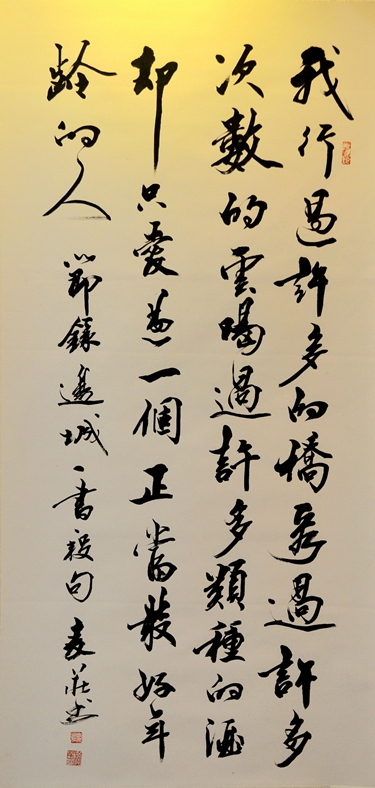 我行過許多的橋看過許多
次數的雲喝過許多類種的酒
却只愛過一個正當最好年
齡的人 節錄邊城一書段句